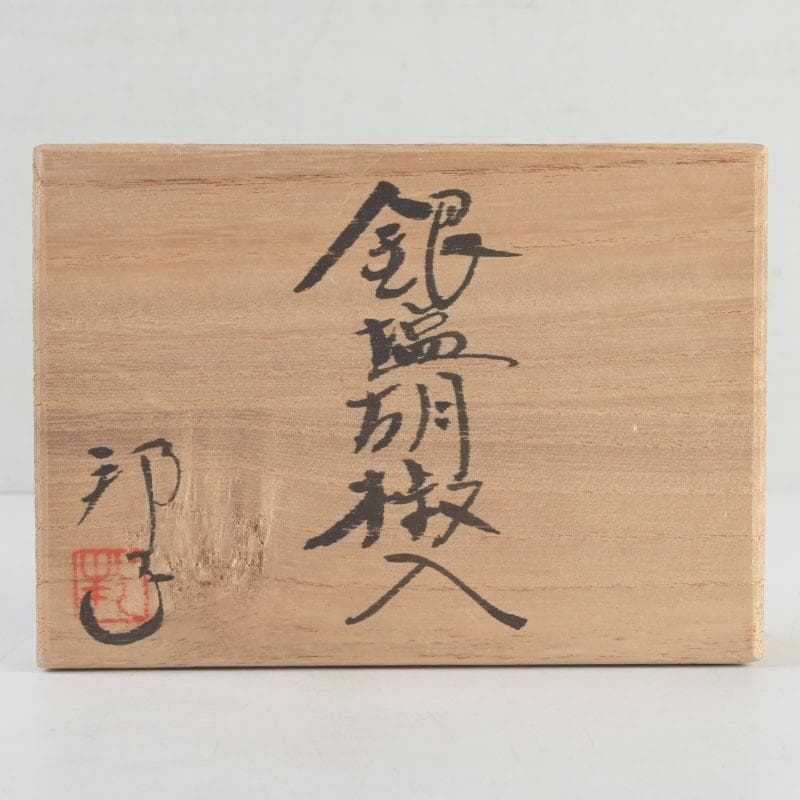 銀塩胡椒入
邦己